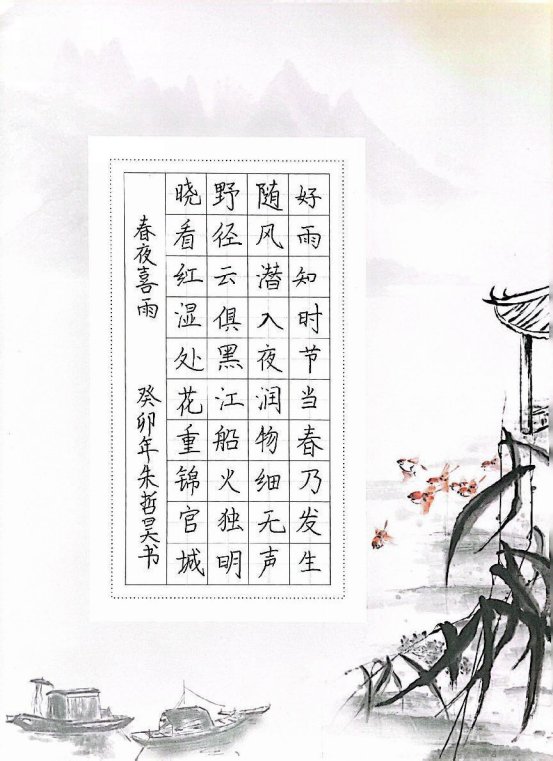 好雨知时节当春乃发生
随风潜入夜润物细无声
野径云俱黑江船火独明
晓看红湿处花重锦官城
春夜喜雨 癸卯年朱哲昊书